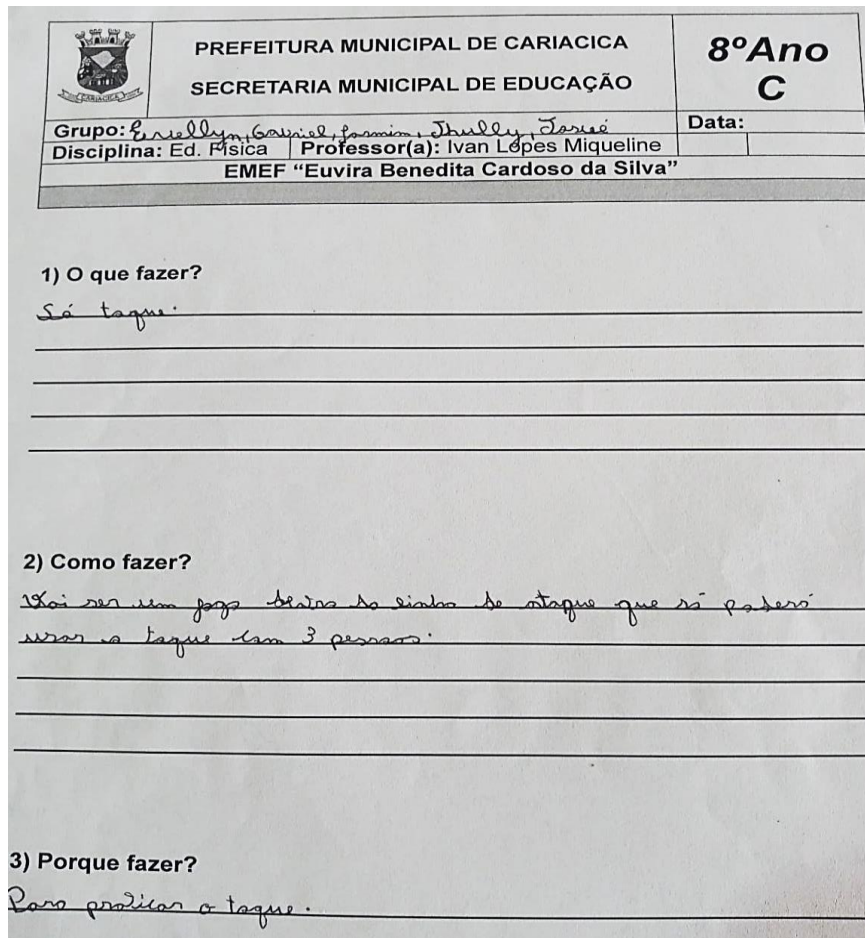 PREFEITURA MUNICIPAL DE CARIACICA
SECRETARIA MUNICIPAL DE EDUCAÇÃO
8ºAno
C
CARIACICA
Grupo: Gabriel, Jasmim, Jhully,
Data:
Disciplina: Ed. Física Professor(a): Ivan Lopes Miqueline
EMEF “Euvira Benedita Cardoso da Silva”
1) O que fazer?
Só toque.
2) Como fazer?
Vai ser um jogo dentro da linha de ataque que só poderá
usar o toque com 3 pessoas.
3) Porque fazer?
Para praticar o toque.